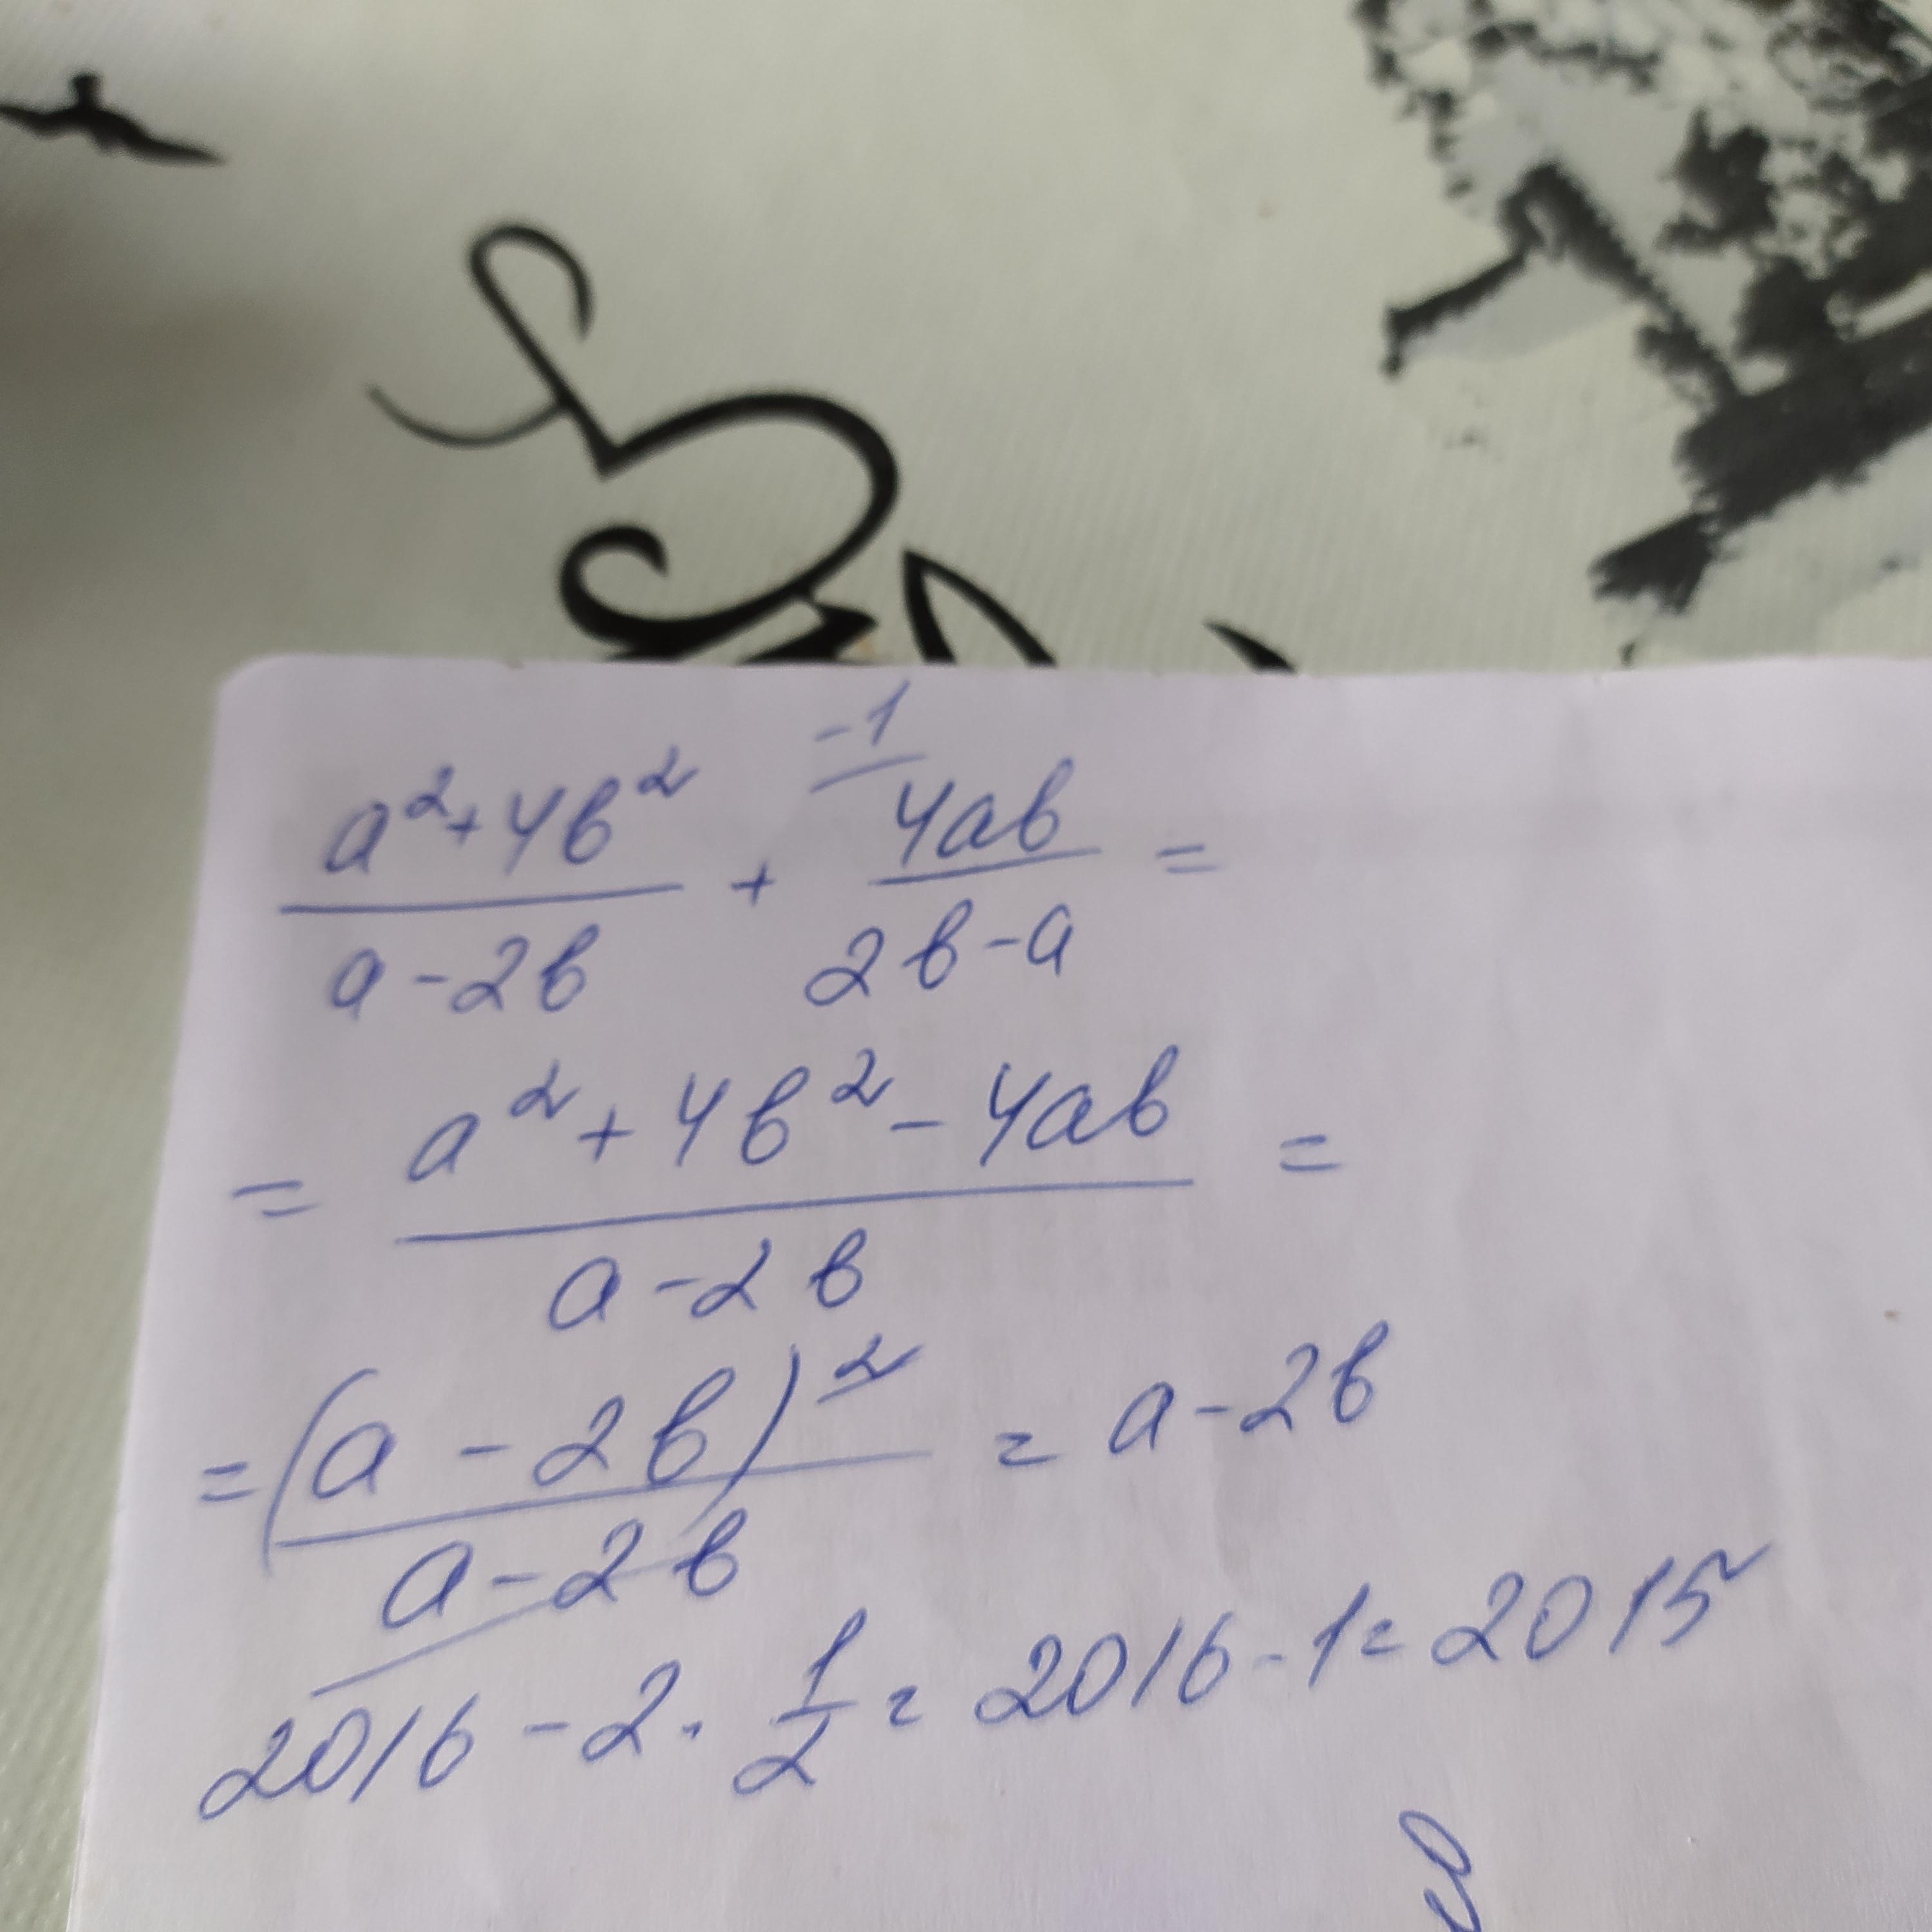 -1
a²+4b²/a-2b + 4ab/2b-a =
= a²+4b²-4ab/a-2b =
=(a-2b)²/a-2b = a-2b
2016-2·1/2=2016-1=2015